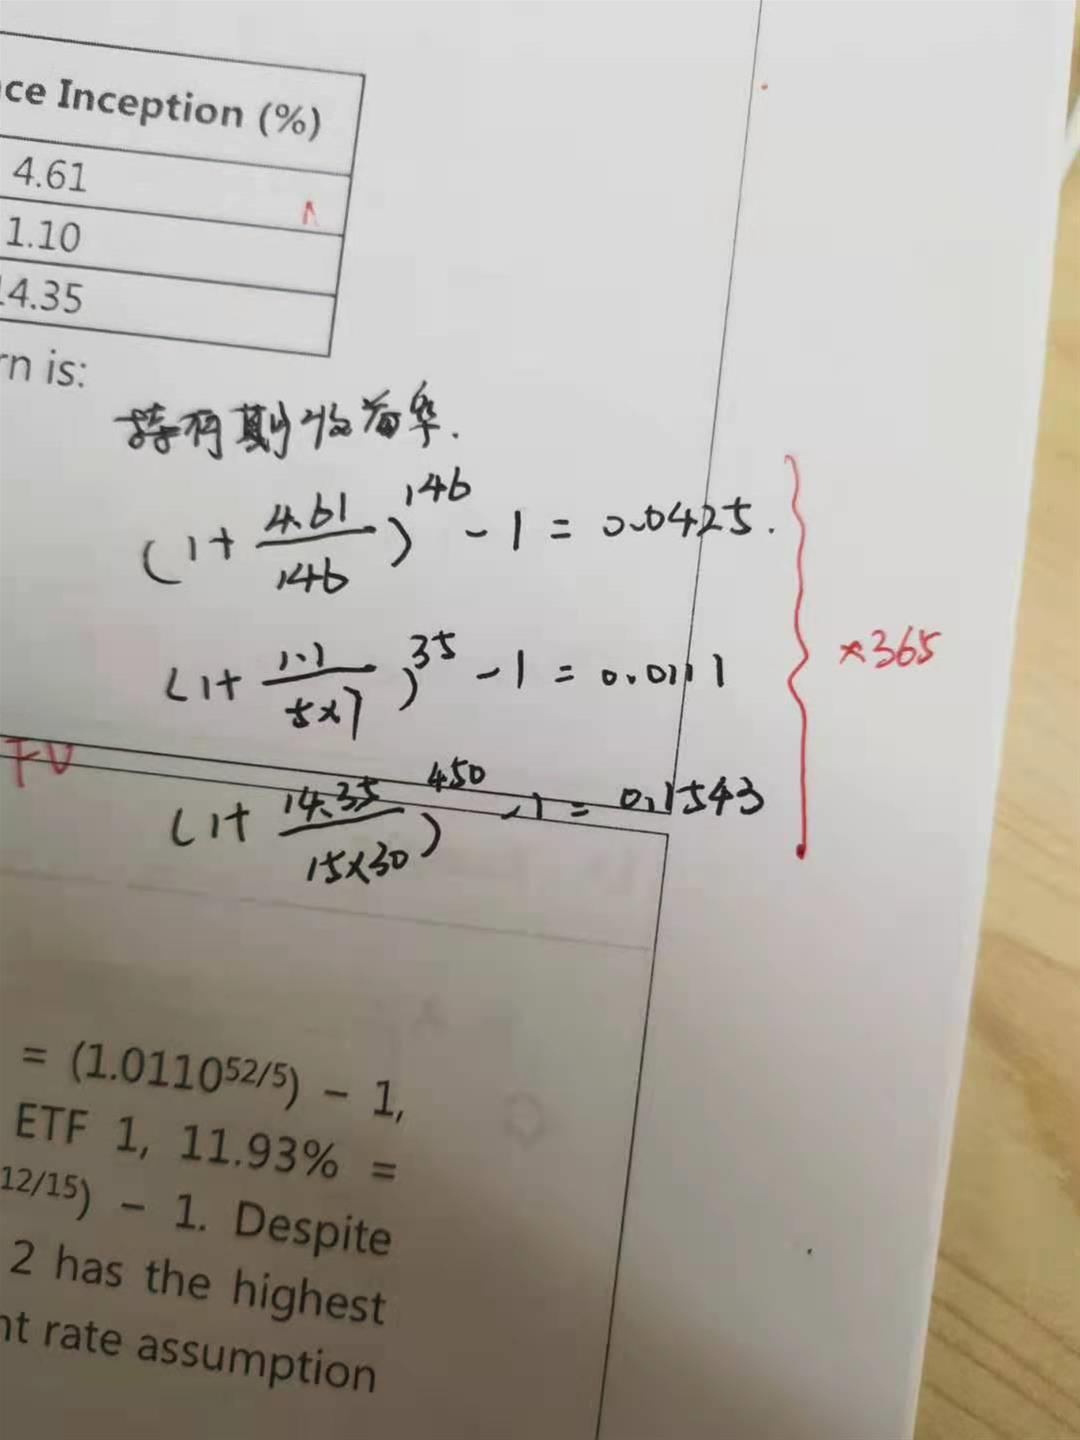 ce Inception (%)
4.61
1.10
4.35
rn is:
持有期收益率.
(1+ 4.61/146)^146 - 1 = 0.0425.
(1+ 1.1/5×7)^35 - 1 = 0.0111
×365
FV
(1+ 14.35/15×30)^450 - 1 = 0.1543
= (1.0110^52/5) - 1,
ETF 1, 11.93% =
12/15) - 1. Despite
2 has the highest
nt rate assumption